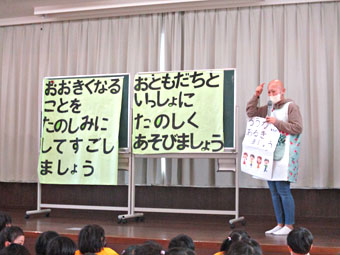 おおきくなる
ことを
たのしみに
してすごし
ましょう
おともだちと
いっしょに
たのしく
あそびましょう
ましょう